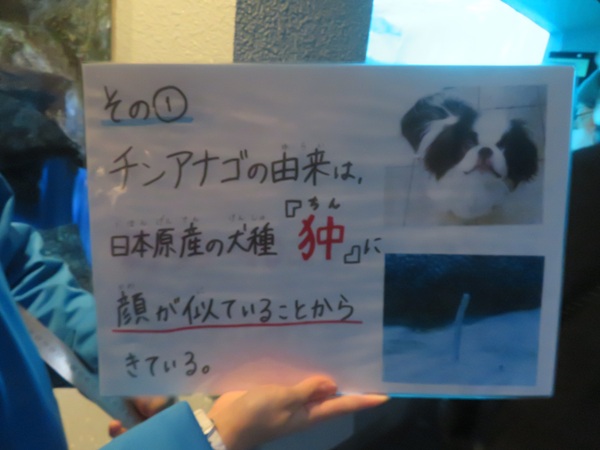 その①
チンアナゴの由来は、
日本原産の犬種『狆』に
顔が似ていることから
きている。